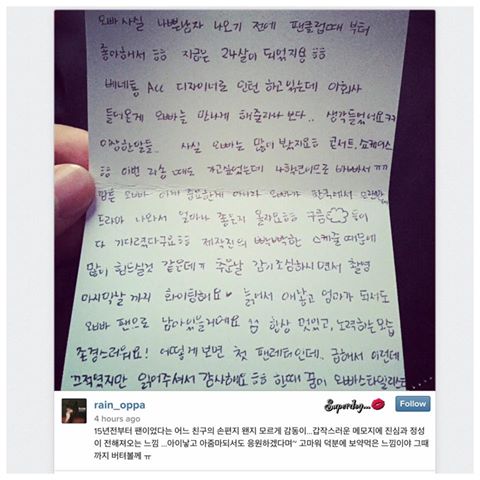 오빠 사실 나쁜남자 나오기 전에 팬클럽때 부터
좋아해서 ㅎㅎ 지금은 24살이 되었지용 ㅎㅎ
베네통 Acc 디자이너로 인턴 하고있는데 이회사
들어온게 오빠를 만나게 해줄라나 보다.. 생각들었어요ㅋㅋ
이상한말들.. 사실 오빠는 많이 봤지요ㅎ 콘서트, 쇼케이스
ㅎㅎ 이번 때도 가고싶었는데 4학년이므로 바빠서 ㅠㅠ
오빠 이게 중요한게 아니라 오빠가 한국에서 오랜만에
드라마 나와서 얼마나 좋은지 몰라요ㅎㅎ 구름들이
다 기다렸다구요ㅎㅎ 제작진의 빡빡한 스케쥴 때문에
많이 힘드실것 같은데ㅠ 추운날 감기조심하시면서 촬영
마지막날 까지 화이팅해요♥ 늙어서 애낳고 엄마가 되서도
오빠 팬으로 남아있을거에요 항상 멋있고, 노력하는모습
존경스러워요! 어떻게 보면 첫 팬레터인데. 급해서 이런데
끄적였지만 읽어주셔서 감사해요 ㅎㅎ 한때 꿈이 오빠스타일리스트
rain_oppa
4 hours ago
Superdog...
Follow
15년전부터 팬이었다는 어느 친구의 손편지 왠지 모르게 감동이...갑작스러운 메모지에 진심과 정성
이 전해져오는 느낌 ...아이낳고 아줌마되서도 응원하겠다며~ 고마워 덕분에 보약먹은 느낌이야 그때
까지 버텨볼께 ㅠ